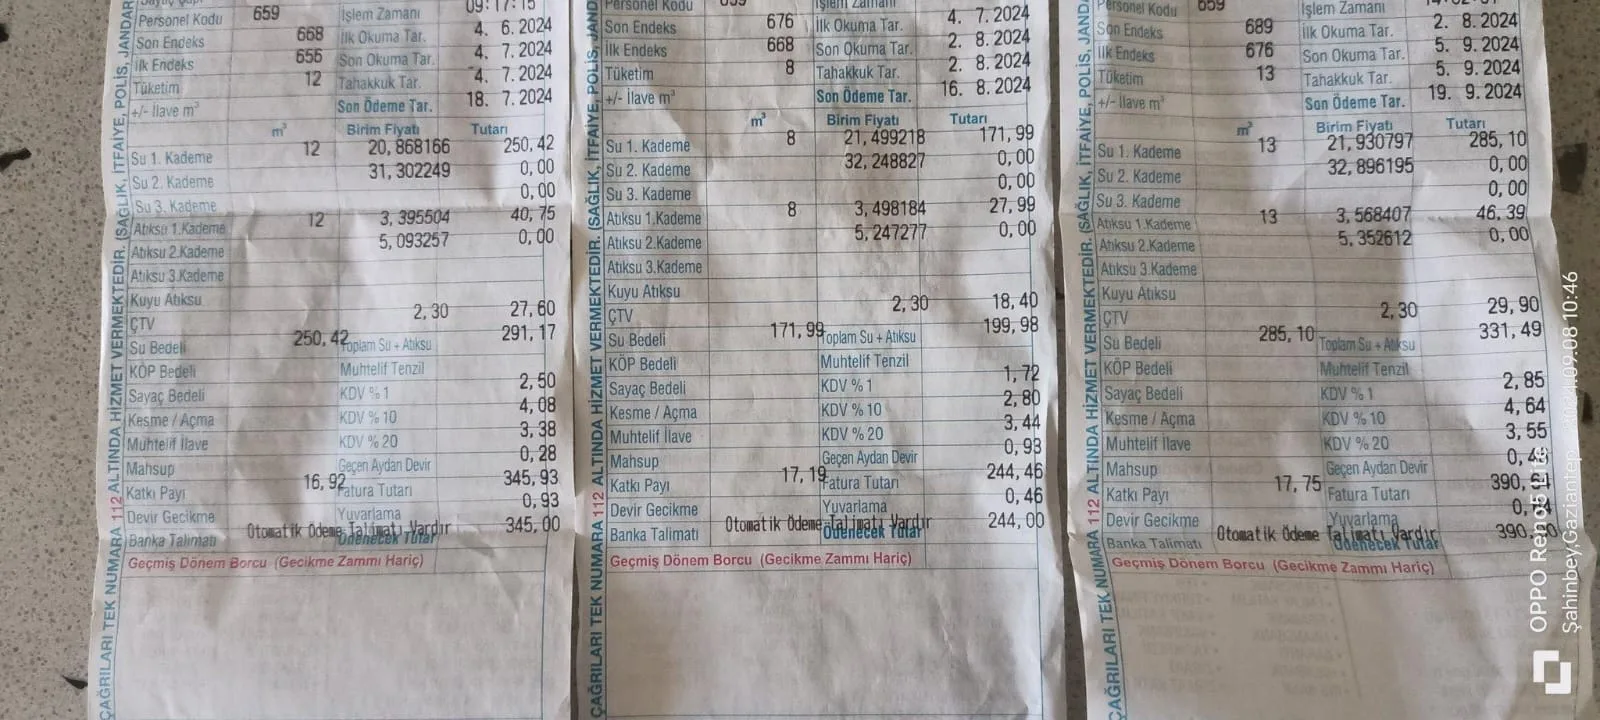 Personel Kodu 659 İşlem Zamanı 09:17:15
Son Endeks 668 İlk Okuma Tar. 4. 6.2024
İlk Endeks 656 Son Okuma Tar. 4. 7.2024
Tüketim 12 Tahakkuk Tar. 4. 7.2024
+/- İlave m³ Son Ödeme Tar. 18. 7.2024
m³ Birim Fiyatı Tutarı
Su 1. Kademe 12 20,868166 250,42
Su 2. Kademe 31,302249 0,00
Su 3. Kademe 0,00
Atıksu 1.Kademe 12 3,395504 40,75
Atıksu 2.Kademe 5,093257 0,00
Atıksu 3.Kademe
Kuyu Atıksu
ÇTV 2,30 27,60
Su Bedeli 250,42 Toplam Su + Atıksu 291,17
KÖP Bedeli Muhtelif Tenzil
Sayaç Bedeli KDV % 1 2,50
Kesme / Açma KDV % 10 4,08
Muhtelif İlave KDV % 20 3,38
Mahsup Geçen Aydan Devir 0,28
Katkı Payı 16,92 Fatura Tutarı 345,93
Devir Gecikme Yuvarlama 0,93
Banka Talimatı Otomatik Ödeme Talimatı Vardır Ödenecek Tutar 345,00
Geçmiş Dönem Borcu (Gecikme Zammı Hariç)
ÇAĞRILARI TEK NUMARA 112 ALTINDA HİZMET VERMEKTEDİR. (SAĞLIK, İTFAİYE, POLİS, JANDAR
Personel Kodu 659 İşlem Zamanı
Son Endeks 676 İlk Okuma Tar. 4. 7.2024
İlk Endeks 668 Son Okuma Tar. 2. 8.2024
Tüketim 8 Tahakkuk Tar. 2. 8.2024
+/- İlave m³ Son Ödeme Tar. 16. 8.2024
m³ Birim Fiyatı Tutarı
Su 1. Kademe 8 21,499218 171,99
Su 2. Kademe 32,248827 0,00
Su 3. Kademe 0,00
Atıksu 1.Kademe 8 3,498184 27,99
Atıksu 2.Kademe 5,247277 0,00
Atıksu 3.Kademe
Kuyu Atıksu
ÇTV 2,30 18,40
Su Bedeli 171,99 Toplam Su + Atıksu 199,98
KÖP Bedeli Muhtelif Tenzil
Sayaç Bedeli KDV % 1 1,72
Kesme / Açma KDV % 10 2,80
Muhtelif İlave KDV % 20 3,44
Mahsup Geçen Aydan Devir 0,93
Katkı Payı 17,19 Fatura Tutarı 244,46
Devir Gecikme Yuvarlama 0,46
Banka Talimatı Otomatik Ödeme Talimatı Vardır Ödenecek Tutar 244,00
Geçmiş Dönem Borcu (Gecikme Zammı Hariç)
ÇAĞRILARI TEK NUMARA 112 ALTINDA HİZMET VERMEKTEDİR. (SAĞLIK, İTFAİYE, POLİS, JAND
Personel Kodu 659 İşlem Zamanı
Son Endeks 689 İlk Okuma Tar. 2. 8.2024
İlk Endeks 676 Son Okuma Tar. 5. 9.2024
Tüketim 13 Tahakkuk Tar. 5. 9.2024
+/- İlave m³ Son Ödeme Tar. 19. 9.2024
m³ Birim Fiyatı Tutarı
Su 1. Kademe 13 21,930797 285,10
Su 2. Kademe 32,896195 0,00
Su 3. Kademe 0,00
Atıksu 1.Kademe 13 3,568407 46,39
Atıksu 2.Kademe 5,352612 0,00
Atıksu 3.Kademe
Kuyu Atıksu
ÇTV 2,30 29,90
Su Bedeli 285,10 Toplam Su + Atıksu 331,49
KÖP Bedeli Muhtelif Tenzil
Sayaç Bedeli KDV % 1 2,85
Kesme / Açma KDV % 10 4,64
Muhtelif İlave KDV % 20 3,55
Mahsup Geçen Aydan Devir
Katkı Payı 17,75 Fatura Tutarı
Devir Gecikme Yuvarlama
Banka Talimatı Otomatik Ödeme Talimatı Vardır Ödenecek Tutar
Geçmiş Dönem Borcu (Gecikme Zammı Hariç)
ÇAĞRILARI TEK NUMARA 112 ALTINDA HİZMET VERMEKTEDİR. (SAĞLIK, İTFAİYE, POLİS, JANDA
OPPO Reno5 Lite
Şahinbey,Gaziantep 2024.09.08 10:46